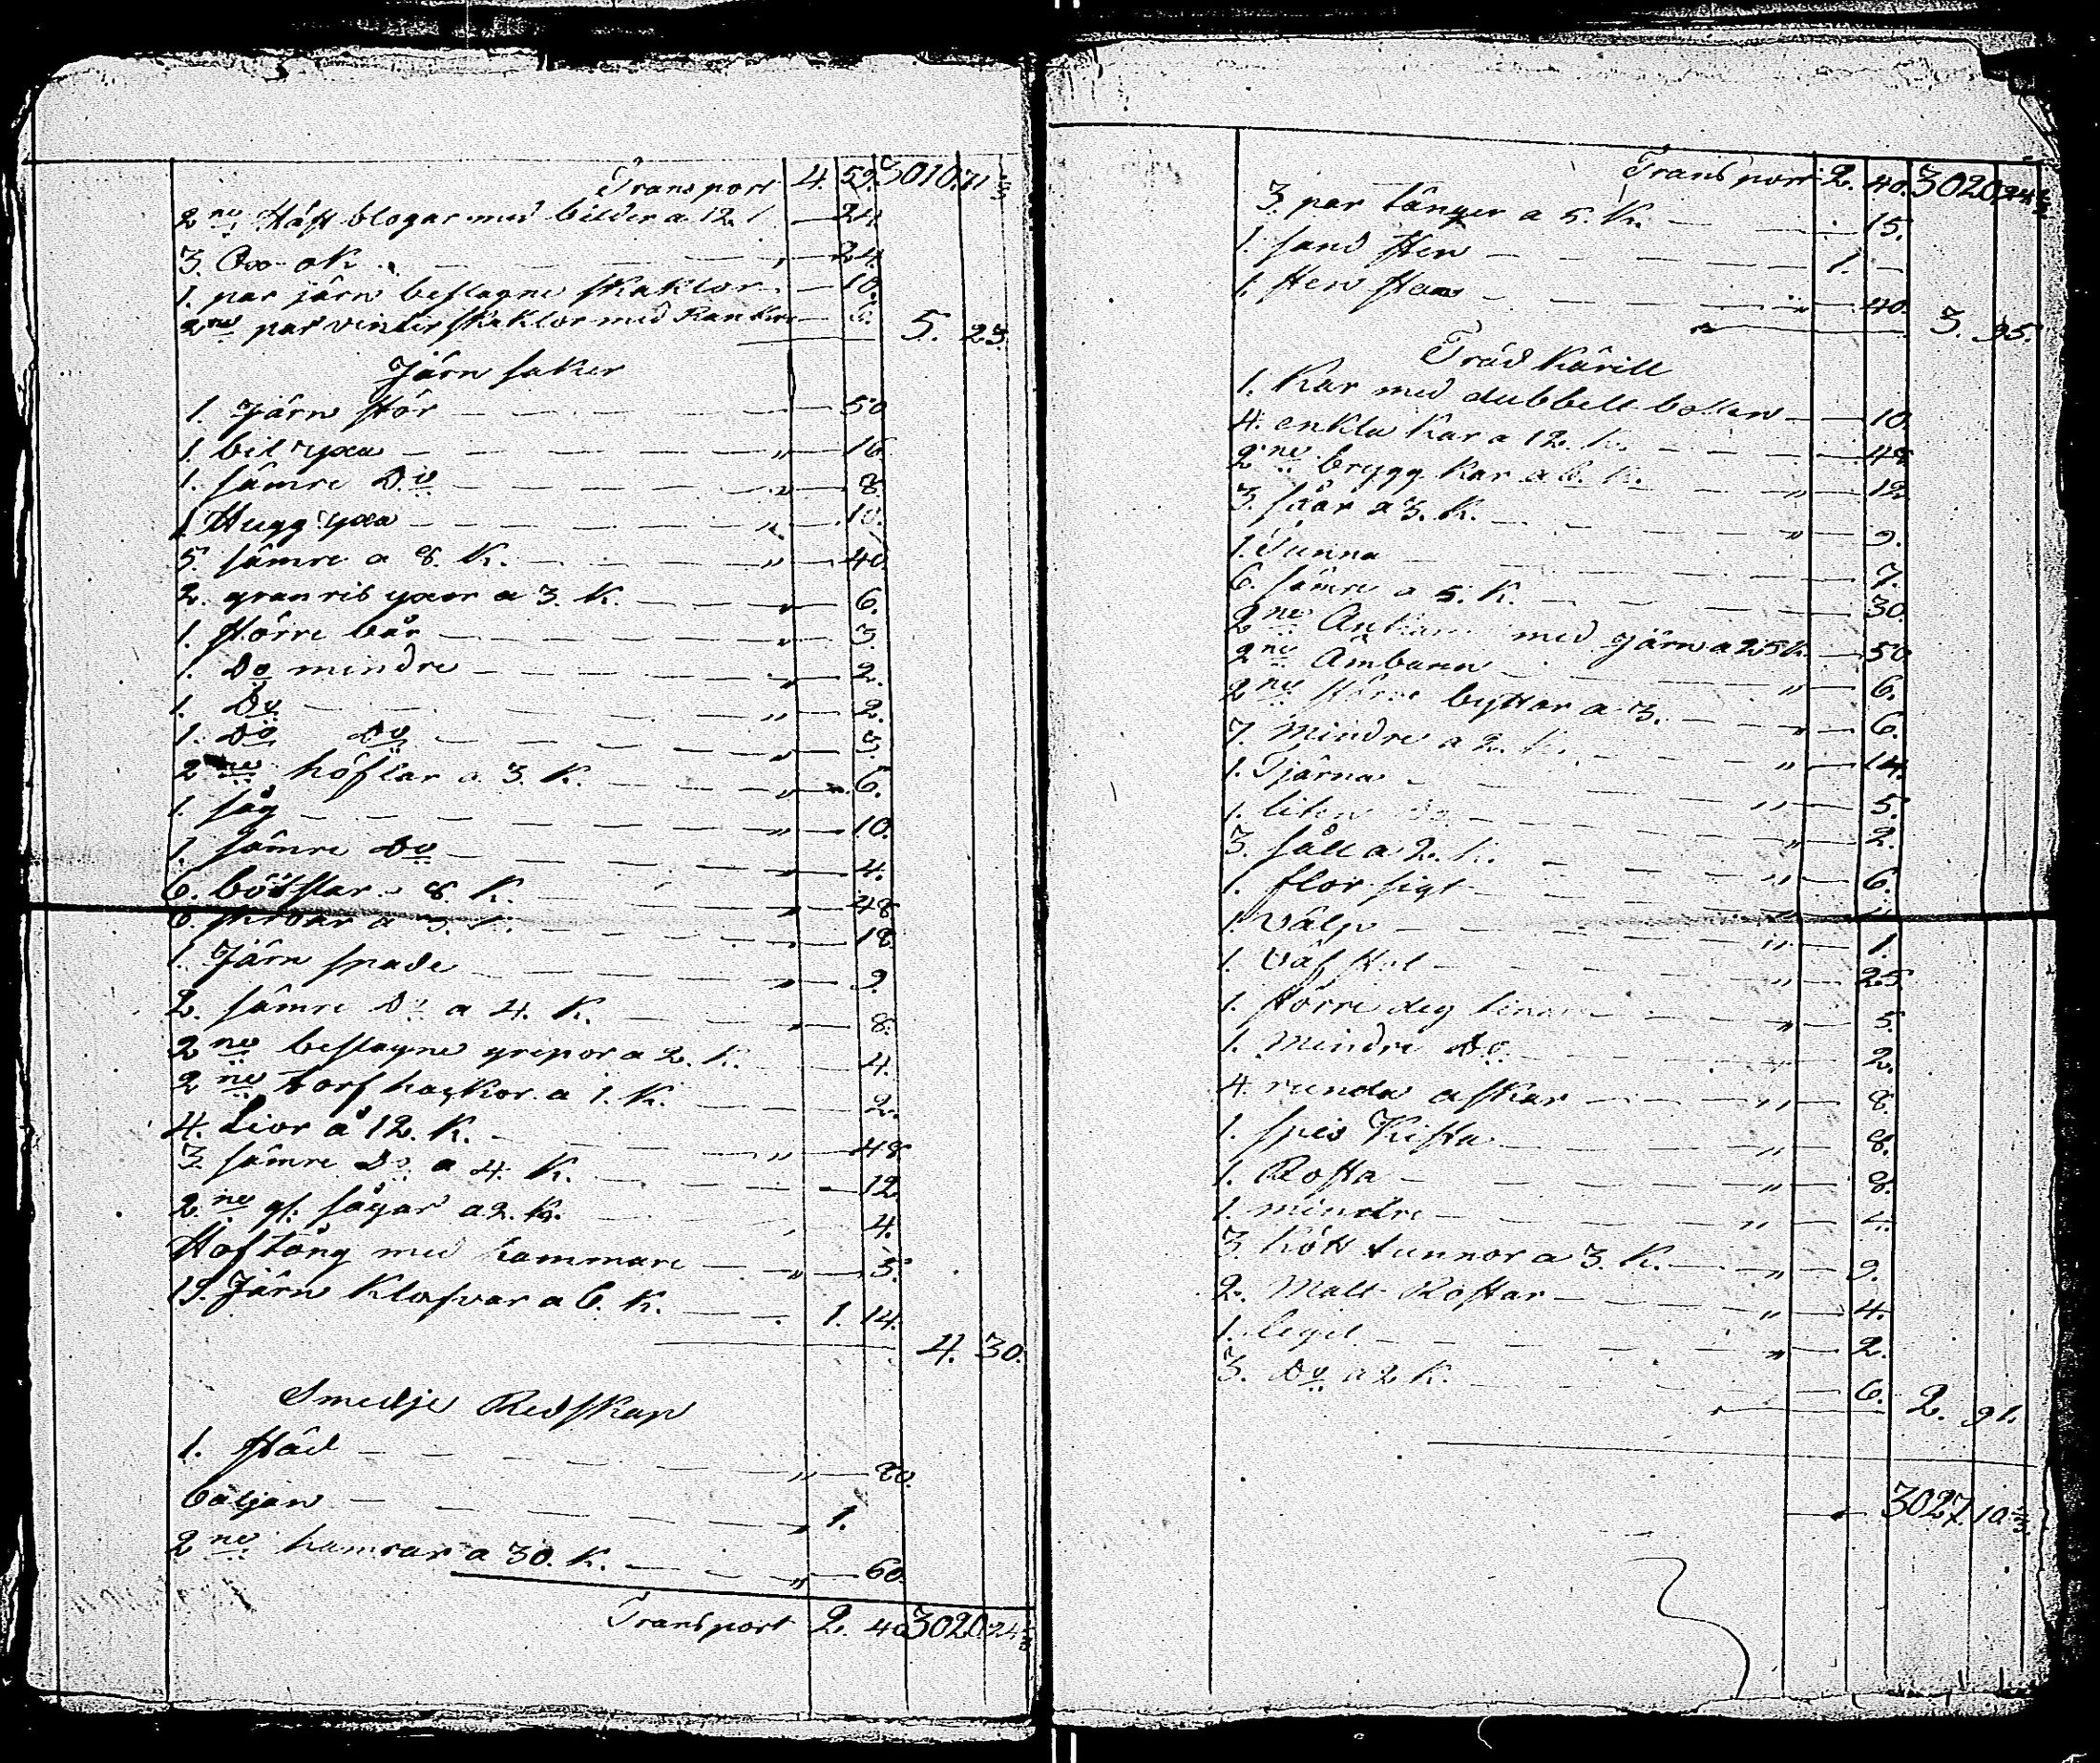 Transport 4. 59. 3010. 71 2/3
2ne Häst blogar med bilder a 12. — 24.
3. Oxo ok — " — 24.
1. par järn beslagne skaklor — 10.
2ne par vinter skaklor med — 6. 5. 23.
Järn saker
1. Järn stör — 50
1. bil yxa — " — 16.
1. sämre Do — " — 8.
1. Hugg yxa — " — 10.
5. sämre a 8. K. — " — 40.
2. granris yxor a 3. K. — " — 6.
1. större bår — " — 3.
1. Do mindre — " — 2.
1. Do — " — 2.
1. Do Do — " — 3.
2ne höflar a 3. K. — " — 6.
1. såg — " — 10.
1. sämre Do — " — 4.
6. 8. K. — " — 48.
6. a 3. K. — " — 18.
1. Järn spade — " — 9.
2. sämre Do a 4. K. — " — 8.
2ne beslagne grepor a 2. K. — 4.
2ne torf hackor a 1. K. — 2.
4. Lior å 12. K. — " — 48
3. sämre Do a 4. K. — 12.
2ne gl. sågar a 2. K. — 4.
Hoftång med hammare — " — 5.
19. Järn Klafvar a 6. K. — 1. 14.
4. 30.
Smedje Redskap
1. städ — " — 80.
bäljan — " 1.
2ne hamrar a 30. K. — " — 60.
Transport 2. 40 3020. 24 2/3
Transport 2. 40. 3020. 24 2/3
3. par tänger a 5. K. — 15.
1. sand sten — 1. —
1. sten — " — 40.
3. 95.
Träd Kärill
1. Kar med dubbelt botten — 10.
4. enkla Kar a 12. K. — 48
2ne brygg Kar a 6. K. — " — 12.
3. såar a 3. K. — " — 9.
1. Tunna — 7.
6. sämre a 5. K. — 30.
2ne med gjärn a 25 K. — 50
2ne Ämbaren — " — 6.
2ne större byttor a 3. — " — 6.
7. Mindre a 2. K. — " — 14.
1. Tjärna — " — 5.
1. liten Do — " — 2.
3. såll a 2. K. — " — 6.
1. flor sigt — "
1. Välp — " — 1.
1. Väf stol — " — 25.
1. större deg — " — 5.
1. Mindre Do — " — 2.
4. runda askar — " — 8.
1. spis Kista — " — 8.
1. Rosta — " — 8.
1. mindre — " — 4.
3. Kött tunnor a 3. K. — " — 9.
2. Malt Rostar — " — 4.
1. legel — " — 2.
3. Do a 2 K. — 6. 2. 91.
3027. 10 2/3.